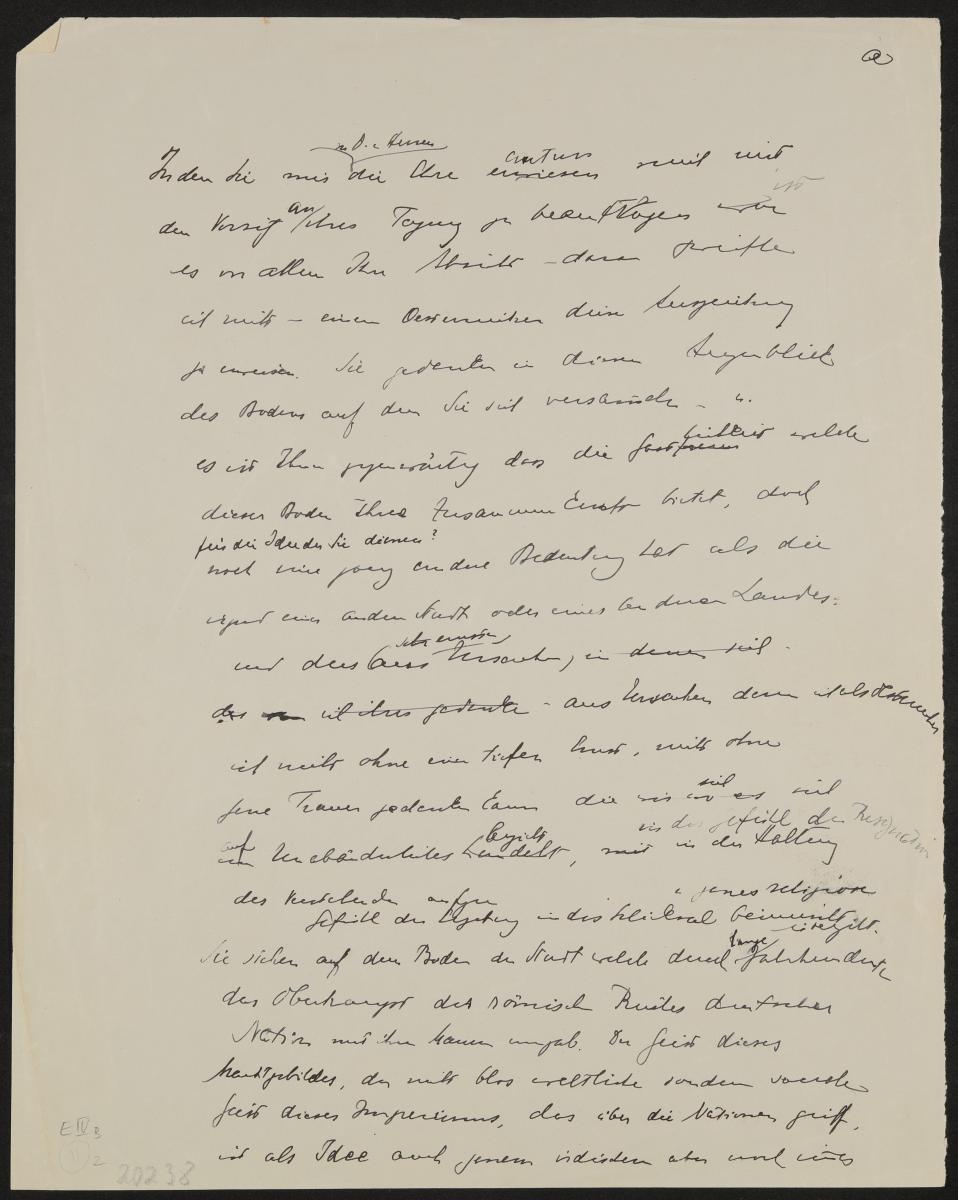 a
m. D. u. Herren
Indem Sie mir die Ehre antun erwiesen mich mit
den Vorsitz an ihrer Tagung zu beauftragen war ist
es vor allem Ihre Absicht – daran zweifle
ich nicht – einem Oesterreicher diese Auszeichnung
zu erweisen. Sie gedenken in diesem Augenblick
des Bodens auf dem Sie sich versammeln – u.
es ist Ihnen gegenwärtig dass die Gastfreiheit welche
dieser Boden Ihrer Zusammenkunft bietet, doch
für die Idee der Sie dienen?
noch eine ganz andere Bedeutung hat als die
irgend einer anderen Stadt oder eines anderen Landes:
und dies aus Ursachen, in denen sich
ich ihrer gedenke – aus Ursachen deren ich als Österreicher
ich nicht ohne einen tiefen Ernst, nicht ohne
jene Trauer gedenken kann die sich
in das Gefühl der Resignation
auf Unabänderliches bezieht, mit in der Haltung
des Verstehenden
Gefühl der Ergebung in das Schicksal beimischt
u. jenes religiöse
Sie stehen auf dem Boden der Stadt welche durch lange Jahrhunderte
das Oberhaupt des römischen Reiches deutscher
Nation mit ihren Mauern umgab. Der Geist dieses
Machtgebildes, der nicht blos weltliche sondern
Geist dieses Imperiums, das über die Nationen griff,
ist als Idee auch jenem irdischen aber noch immer
E IV B
II 2
20238